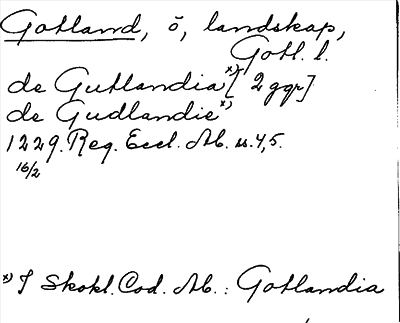 Gotland, ö, landskap,
Gotl. l.
de Gutlandia x) [2 ggr]
de Gudlandie x)
1229. Reg. Eccl. Ab. u. 4, 5.
16/2
x) I Skokl. Cod. Ab.: Gotlandia